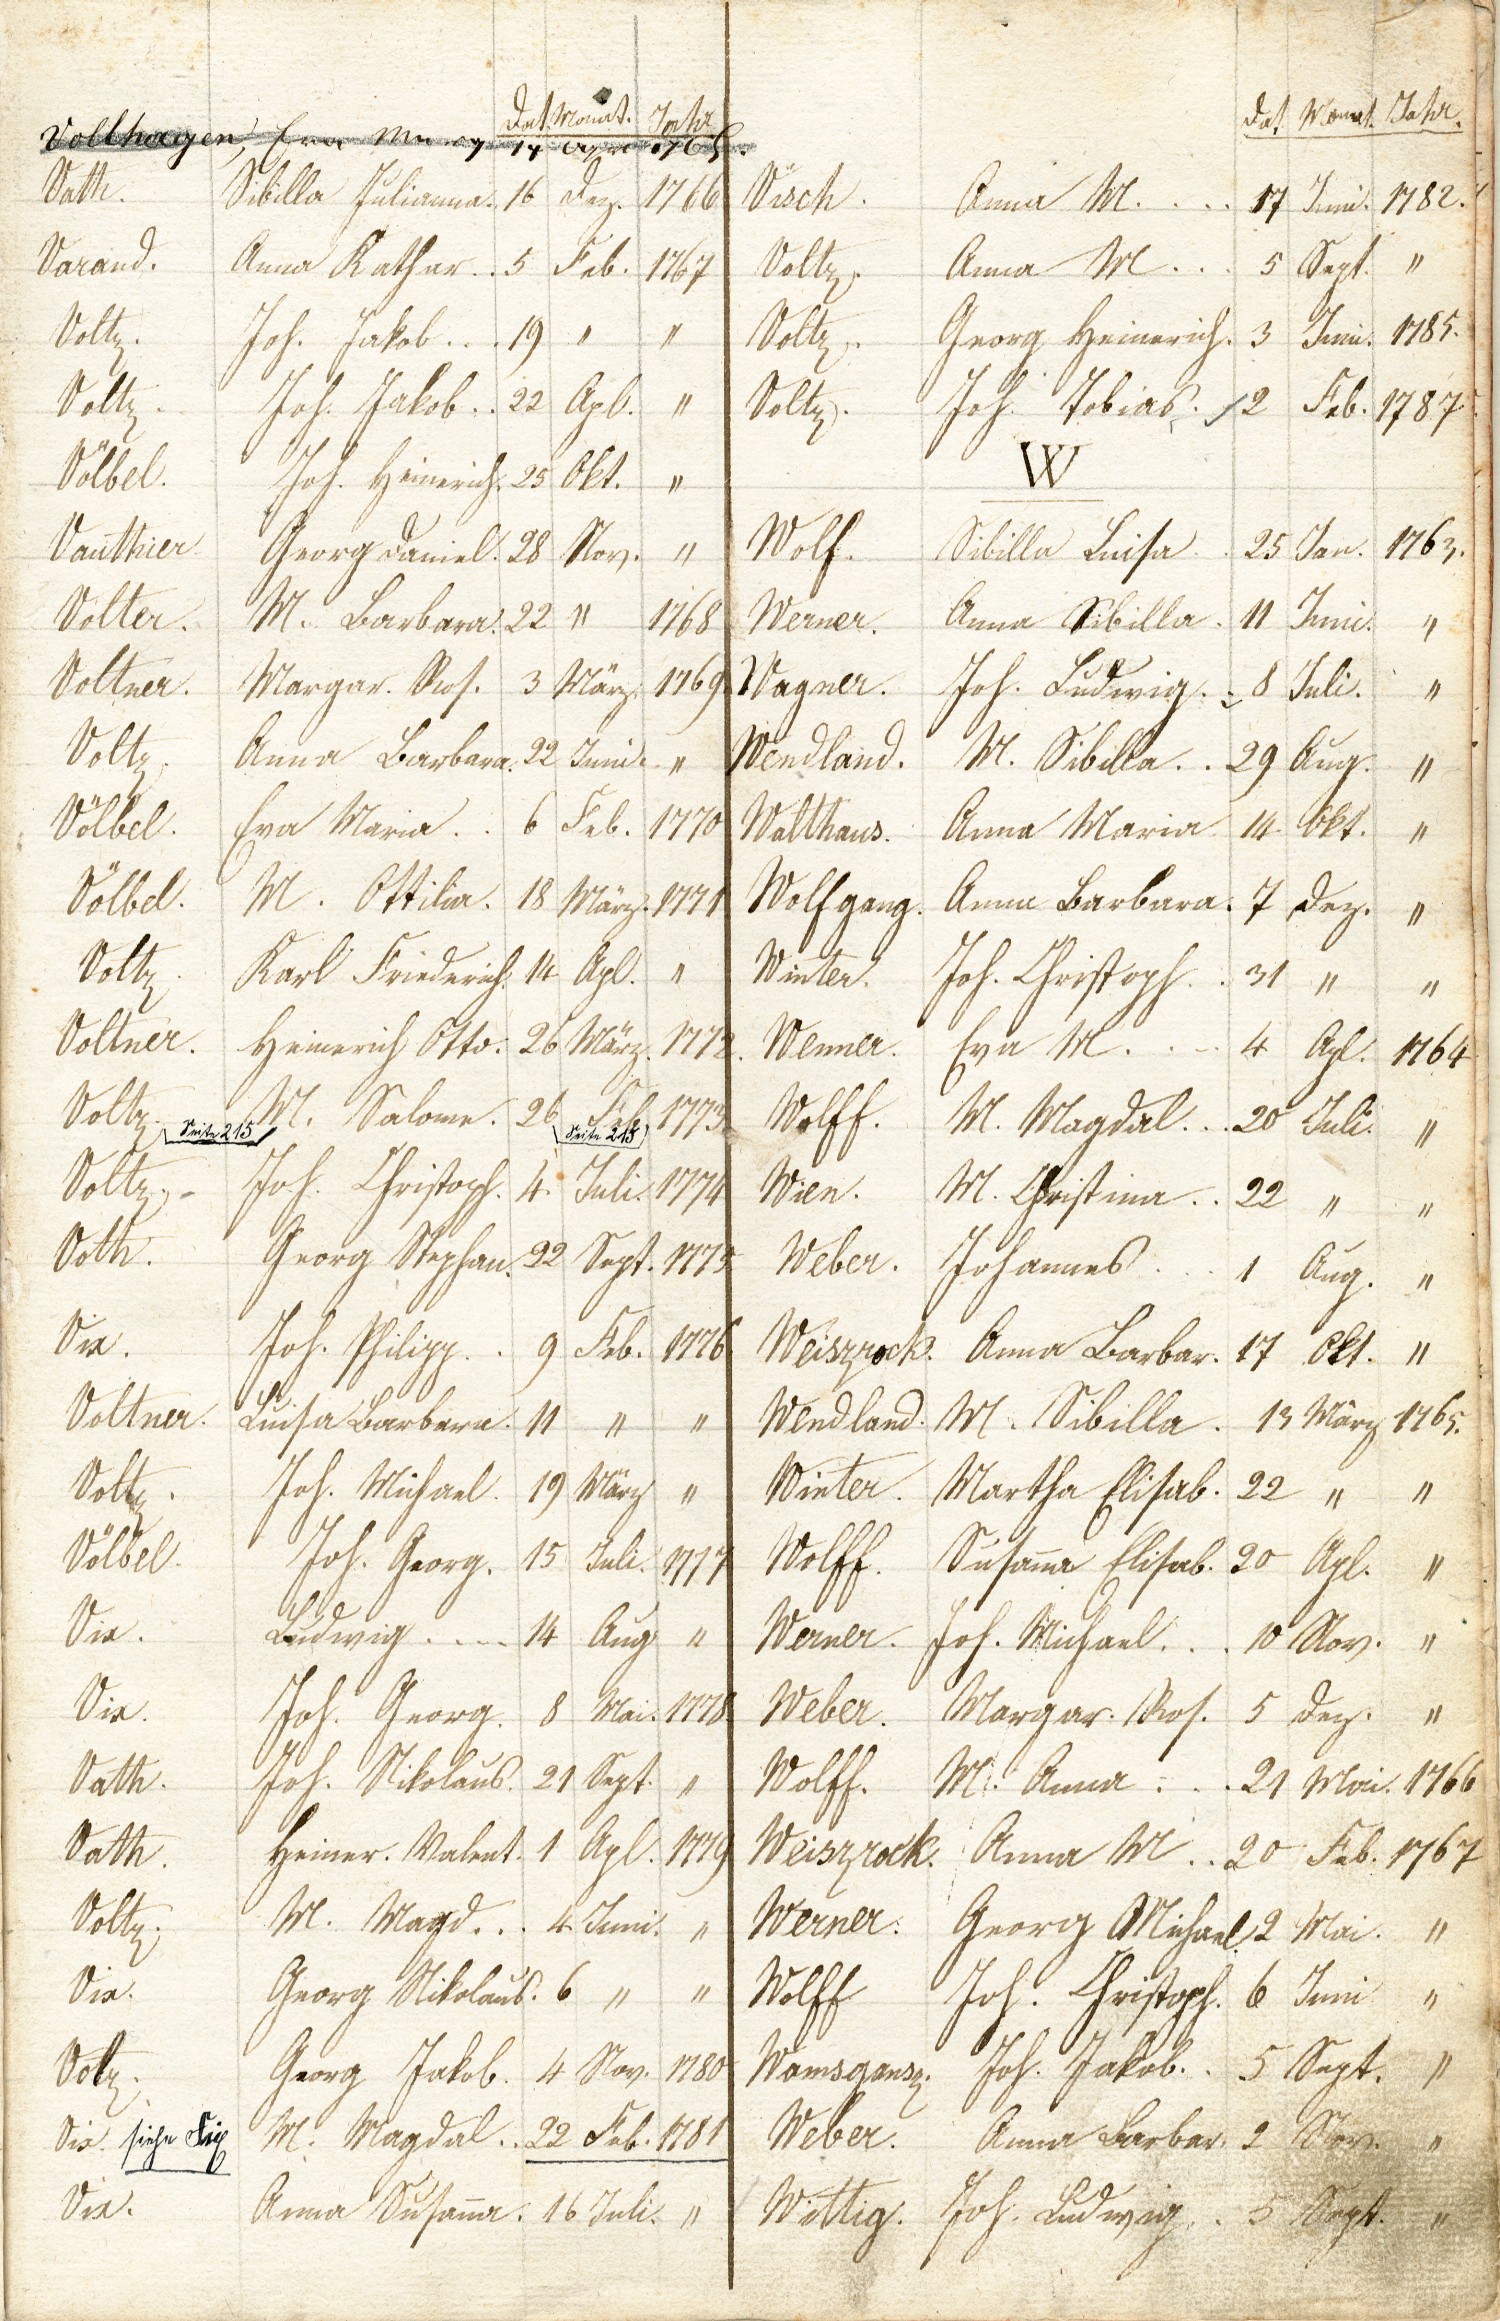 Dat. Monat. Jahr
Vollhagen, Eva
Vath. Sibilla Julianna. 16 Dez. 1766
Varand. Anna Kathar. . 5 Feb. 1767
Voltz. Joh. Jakob . . . 19 " "
Voltz. Joh. Jakob . . 22 Apl. "
Völbel. Joh. Heinerich. 25 Okt. "
Vauthier Georg Daniel. 28 Nov. "
Volter. M. Barbara. 22 " 1768
Voltner. Margar. Ros. 3 März. 1769
Voltz. Anna Barbara. 22 Juni. "
Völbel. Eva Maria . . 6 Feb. 1770
Völbel. M. Ottilia. 18 März. 1771
Voltz. Karl Friederich. 14 Apl. "
Voltner. Heinerich Otto. 26 März. 1772.
Voltz. M. Salome. 26 Feb. 1773
Seite 215 Seite 215
Voltz. - Joh. Christoph. 4. Juli. 1774
Voth. Georg Stephan. 22 Sept. 1775
Vix. Joh. Philipp. . 9 Feb. 1776
Voltner. Luisa Barbara. 11 " "
Voltz. Joh. Michael. 19 März "
Völbel. Joh. Georg. 15 Juli. 1777
Vix. Ludwig . . . . 14 Aug "
Vix. Joh. Georg. 8 Mai. 1778
Vath. Joh. Nikolaus. 21 Sept. "
Vath. Heiner. Valent. 1 Apl. 1779
Voltz. M. Magd. . . 4 Juni. "
Vix. Georg Nikolaus. 6 " "
Voltz. Georg Jakob. 4 Nov. 1780
Vix. siehe Fix M. Magdal. . 22 Feb. 1781
Vix. Anna Susan̄a. 16 Juli. "
Dat. Monat. Jahr.
Visch. Anna M. . . . 17 Juni. 1782.
Voltz. Anna M. . . 5 Sept. "
Voltz. Georg Heinerich. 3 Juni. 1785.
Voltz. Joh. Tobias. 2 Feb. 1787
W
Wolf. Sibilla Luisa . 25 Jan. 1763.
Werner. Anna Sibilla. 11 Juni. "
Wagner. Joh. Ludwig. . 8 Juli. "
Wendland. M. Sibilla. . 29 Aug. "
Walthaus. Anna Maria 14 Okt. "
Wolfgang. Anna Barbara. 7 Dez. "
Winter. Joh. Christoph. . 31 " "
Wenner. Eva M. . . 4 Apl. 1764
Wolff. M. Magdal. . . 20 Juli. "
Wien. M. Christina. . 22 " "
Weber. Johannes . . . 1 Aug. "
Weiszrock. Anna Barbar. 17 Okt. "
Wendland. M. Sibilla. 13 März 1765.
Winter. Martha Elisab. 22 " "
Wolff. Susan̄a Elisab. 20 Apl. "
Werner. Joh. Michael. . . 10 Nov. "
Weber. Margar. Ros. 5 Dez. "
Wolff. M. Anna . . . 21 Mai. 1766
Weiszrock. Anna M . . 20 Feb. 1767
Werner. Georg Michael. 2 Mai. "
Wolff Joh. Christoph. 6 Juni "
Wamsgansz. Joh. Jakob. . 5 Sept. "
Weber. Anna Barbar. 2 Nov. "
Wittig. Joh. Ludwig. . 5 Sept. "